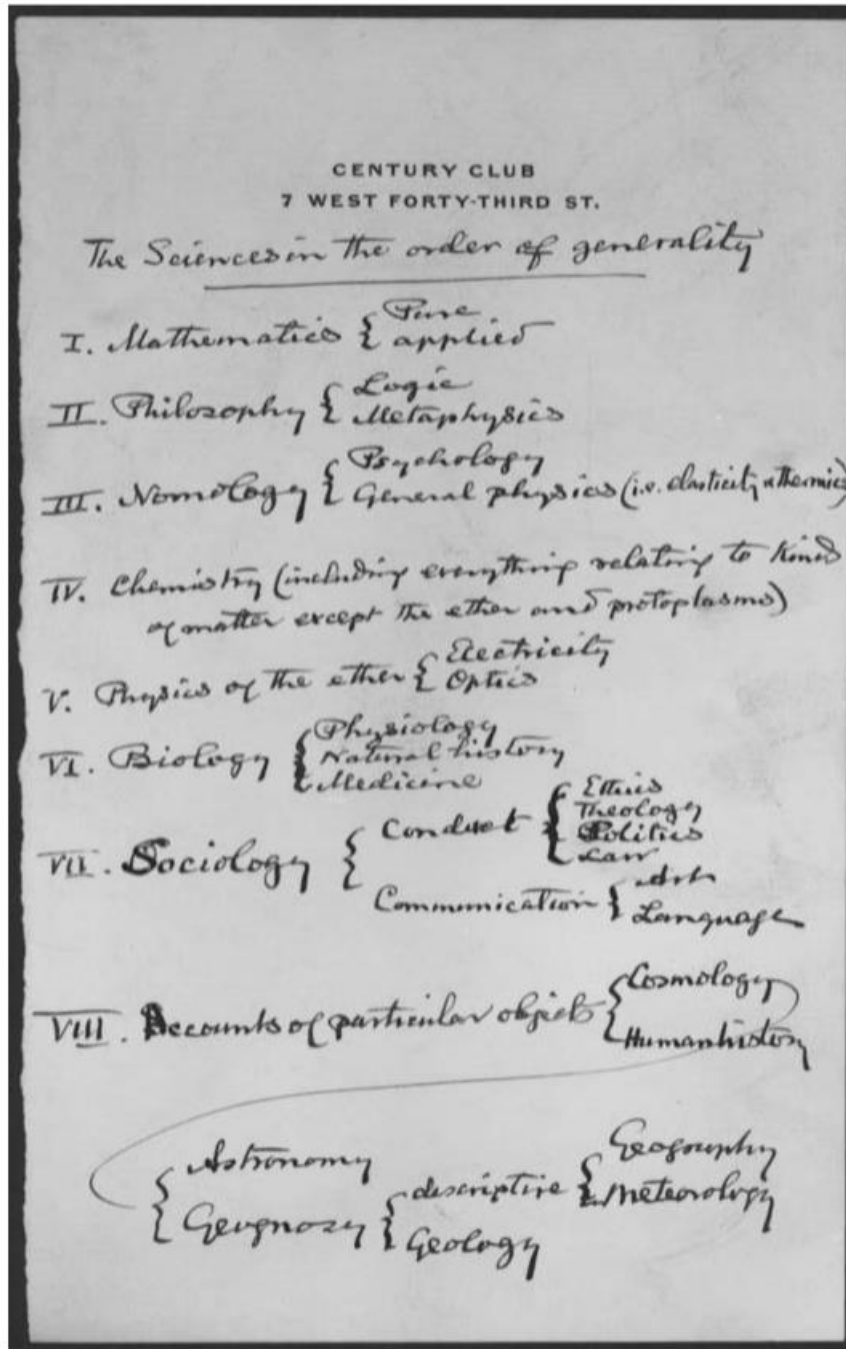 CENTURY CLUB
7 WEST FORTY-THIRD ST.
The Sciences in the order of generality
I. Mathematics { Pure
applied
II. Philosophy { Logic
Metaphysics
III. Nomology { Psychology
General physics (i.e. elasticity & thermics)
IV. Chemistry (including everything relating to kinds
of matter except the ether and protoplasms)
V. Physics of the ether { Electricity
Optics
VI. Biology { Physiology
Natural history
Medicine
VII. Sociology { Conduct { Ethics
Theology
Politics
Law
Communication { Art
Language
VIII. Accounts of particular objects { Cosmology
Human history
{ Astronomy
Geognosy { descriptive { Geography
Meteorology
Geology